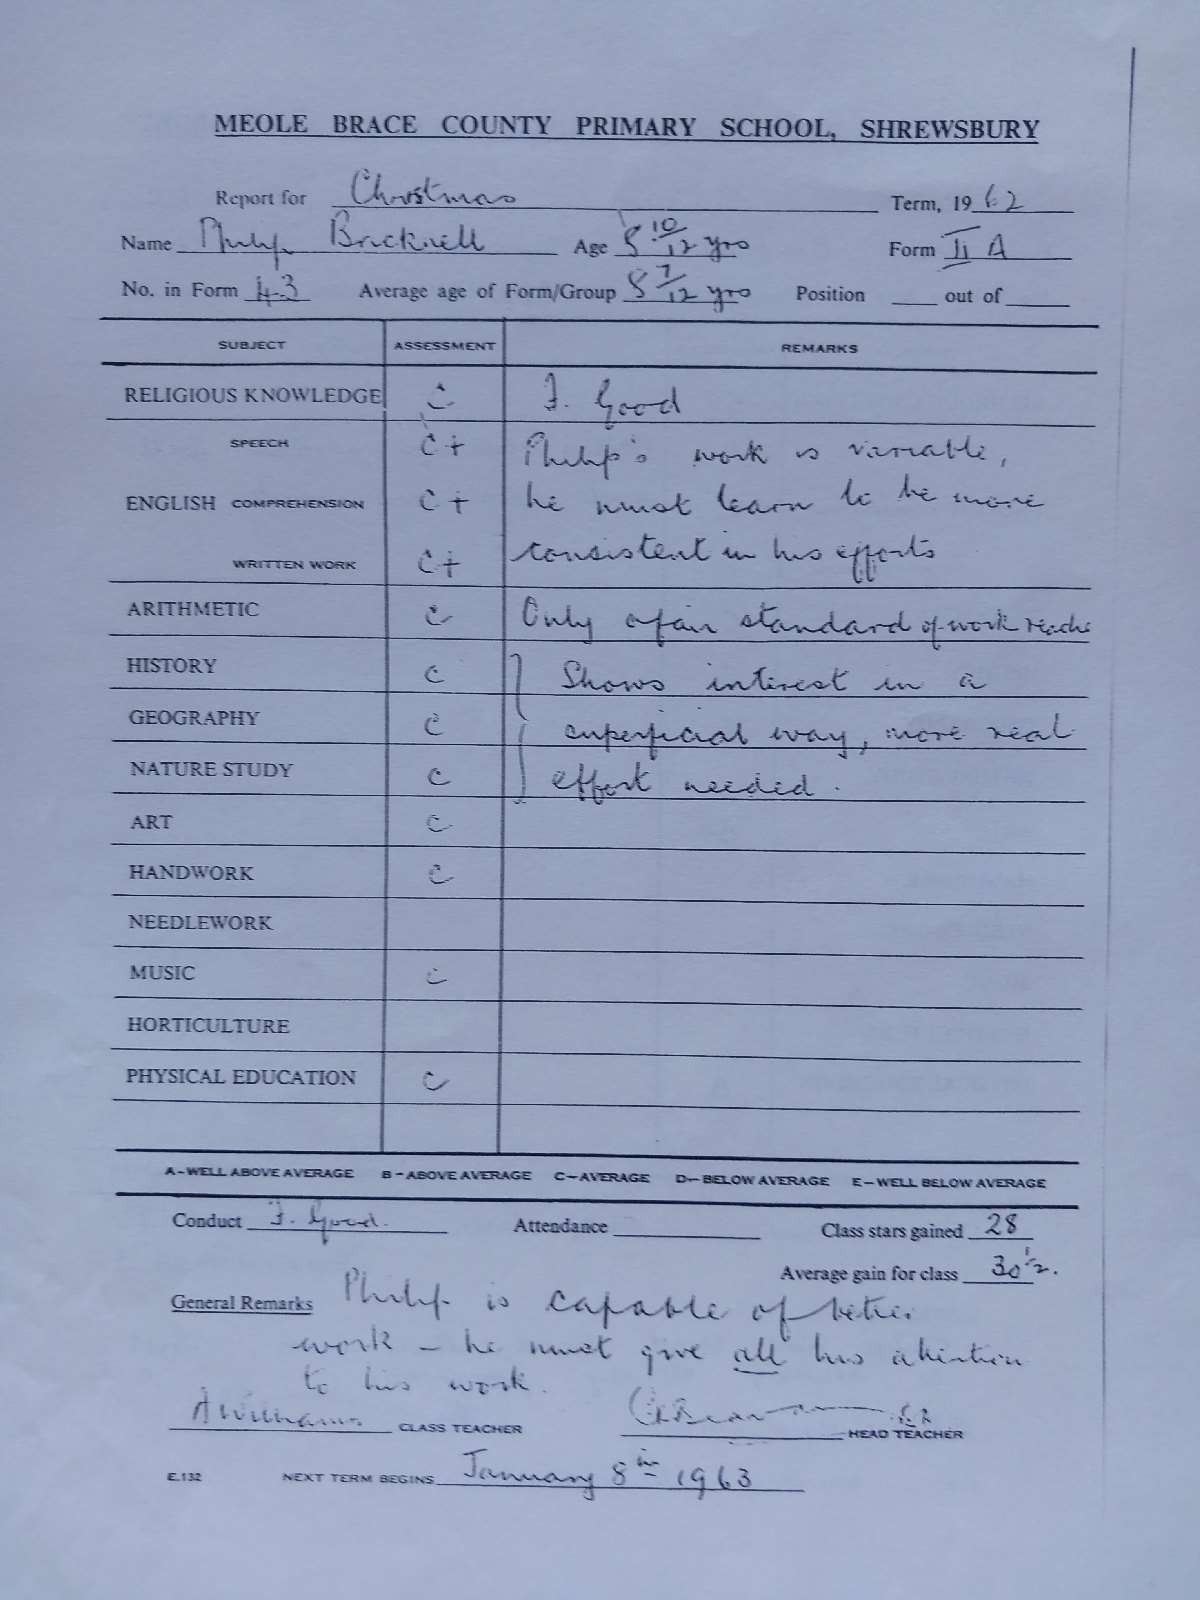 MEOLE BRACE COUNTY PRIMARY SCHOOL, SHREWSBURY
Report for Christmas Term, 1962
Name Philip Bricknell Age 8 10/12 yrs Form II A
No. in Form 43 Average age of Form/Group 8 7/12 yrs Position out of
SUBJECT ASSESSMENT REMARKS
RELIGIOUS KNOWLEDGE C F. Good
SPEECH C+ Philip's work is variable,
ENGLISH COMPREHENSION C+ he must learn to be more
WRITTEN WORK C+ consistent in his efforts
ARITHMETIC C Only a fair standard of work
HISTORY C Shows interest in a
GEOGRAPHY C superficial way, more real
NATURE STUDY C effort needed.
ART C
HANDWORK C
NEEDLEWORK
MUSIC C
HORTICULTURE
PHYSICAL EDUCATION C
A-WELL ABOVE AVERAGE B-ABOVE AVERAGE C-AVERAGE D-BELOW AVERAGE E-WELL BELOW AVERAGE
Conduct F. Good. Attendance Class stars gained 28
Average gain for class 30 1/2.
General Remarks Philip is capable of better
work - he must give all his attention
to his work.
A Williams CLASS TEACHER HEAD TEACHER
E.132 NEXT TERM BEGINS January 8th 1963